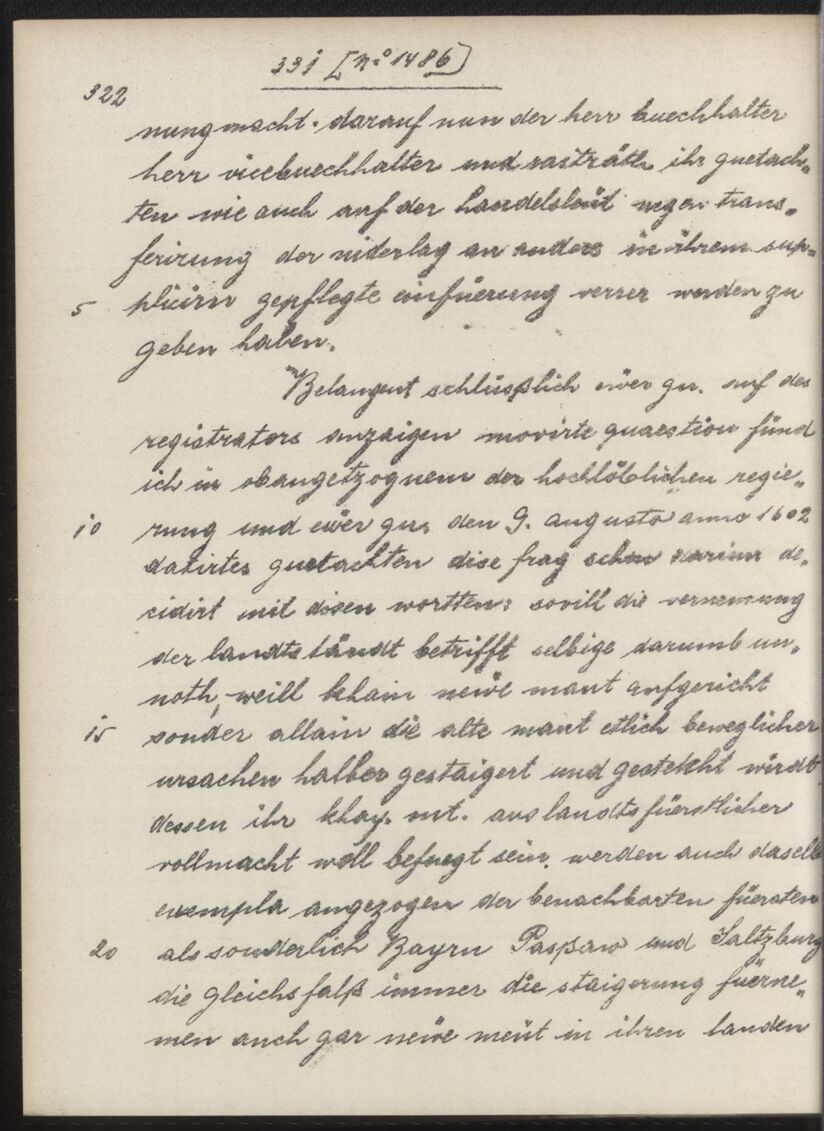 331 [No 1486]
322
nung macht. darauf nun der herr buechhalter
herr vicebuechhalter und raiträth ihr guetach„
ten wie auch auf der handelsleüt wegen trans„
ferirung der niderlag an anders in ihrem sup„
5 plicirn gepflegte einfüerung verrer werden zu
geben haben.
Belangent schlüsslich ewer gn. auf des
registrators anzaigen movirte quaestion find
ich in obangetzognem der hochlöblichen regie„
10 rung und ewer gn. den 9. augusto anno 1602
datirtes guetachten dise frag schon de„
cidirt mit disen wortten: sovill die vernemung
der landtständt betrifft selbige darumb un„
noth, weill khain newe maut aufgericht
15 sonder allain die alte maut etlich beweglicher
ursachen halber gestaigert und gestekht wirdt
dessen ihr khay. mt. aus landtsfüerstlicher
vollmacht woll befuegt sein. werden auch daselb
exempla angezogen der benachbarten füersten
20 als sonderlich Bayrn Passaw und Saltzburg
die gleichsfalß immer die staigerung füerne„
men auch gar newe meüt in ihren landen